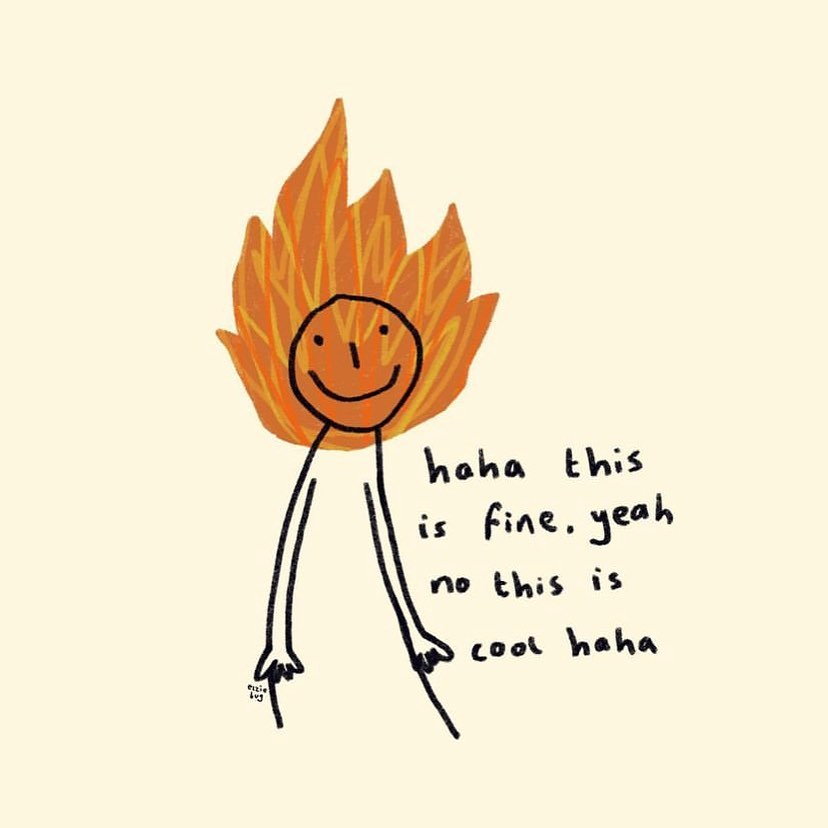 haha this
is fine. yeah
no this is
cool haha
elzie
bug